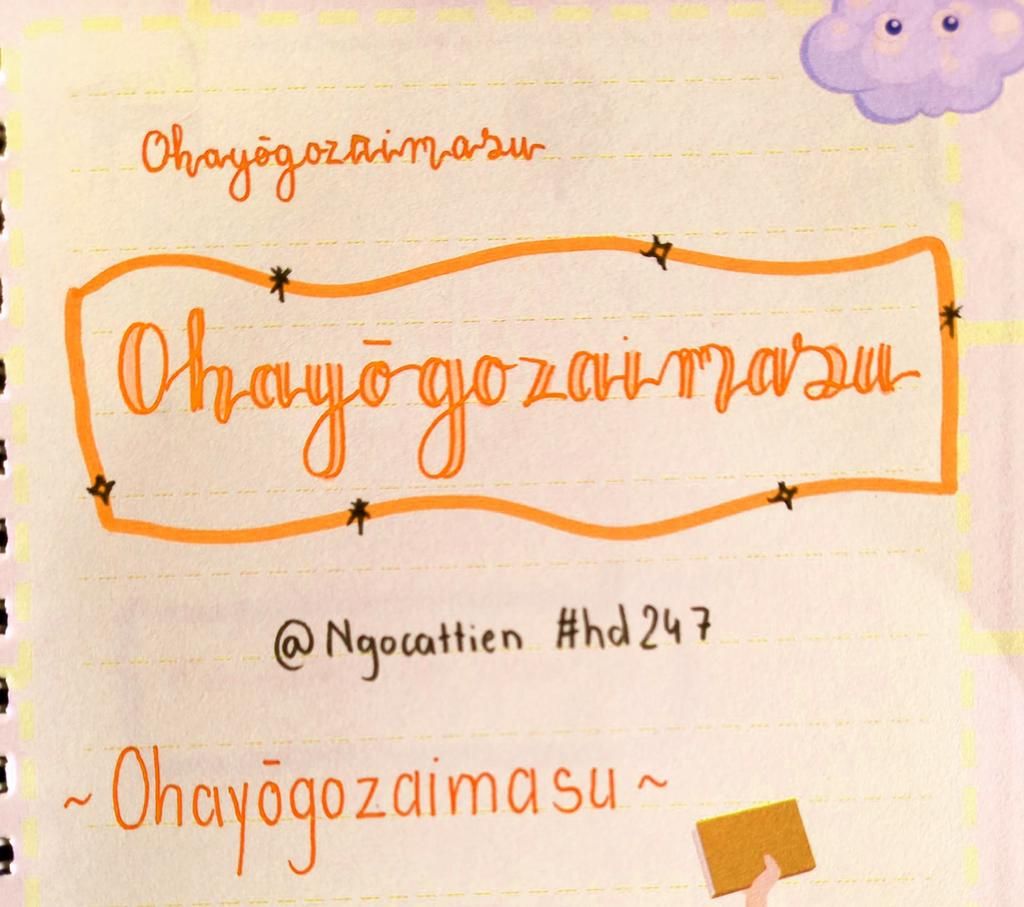 Ohayōgozaimasu
Ohayōgozaimasu
@Ngocattien #hd247
~ Ohayōgozaimasu ~